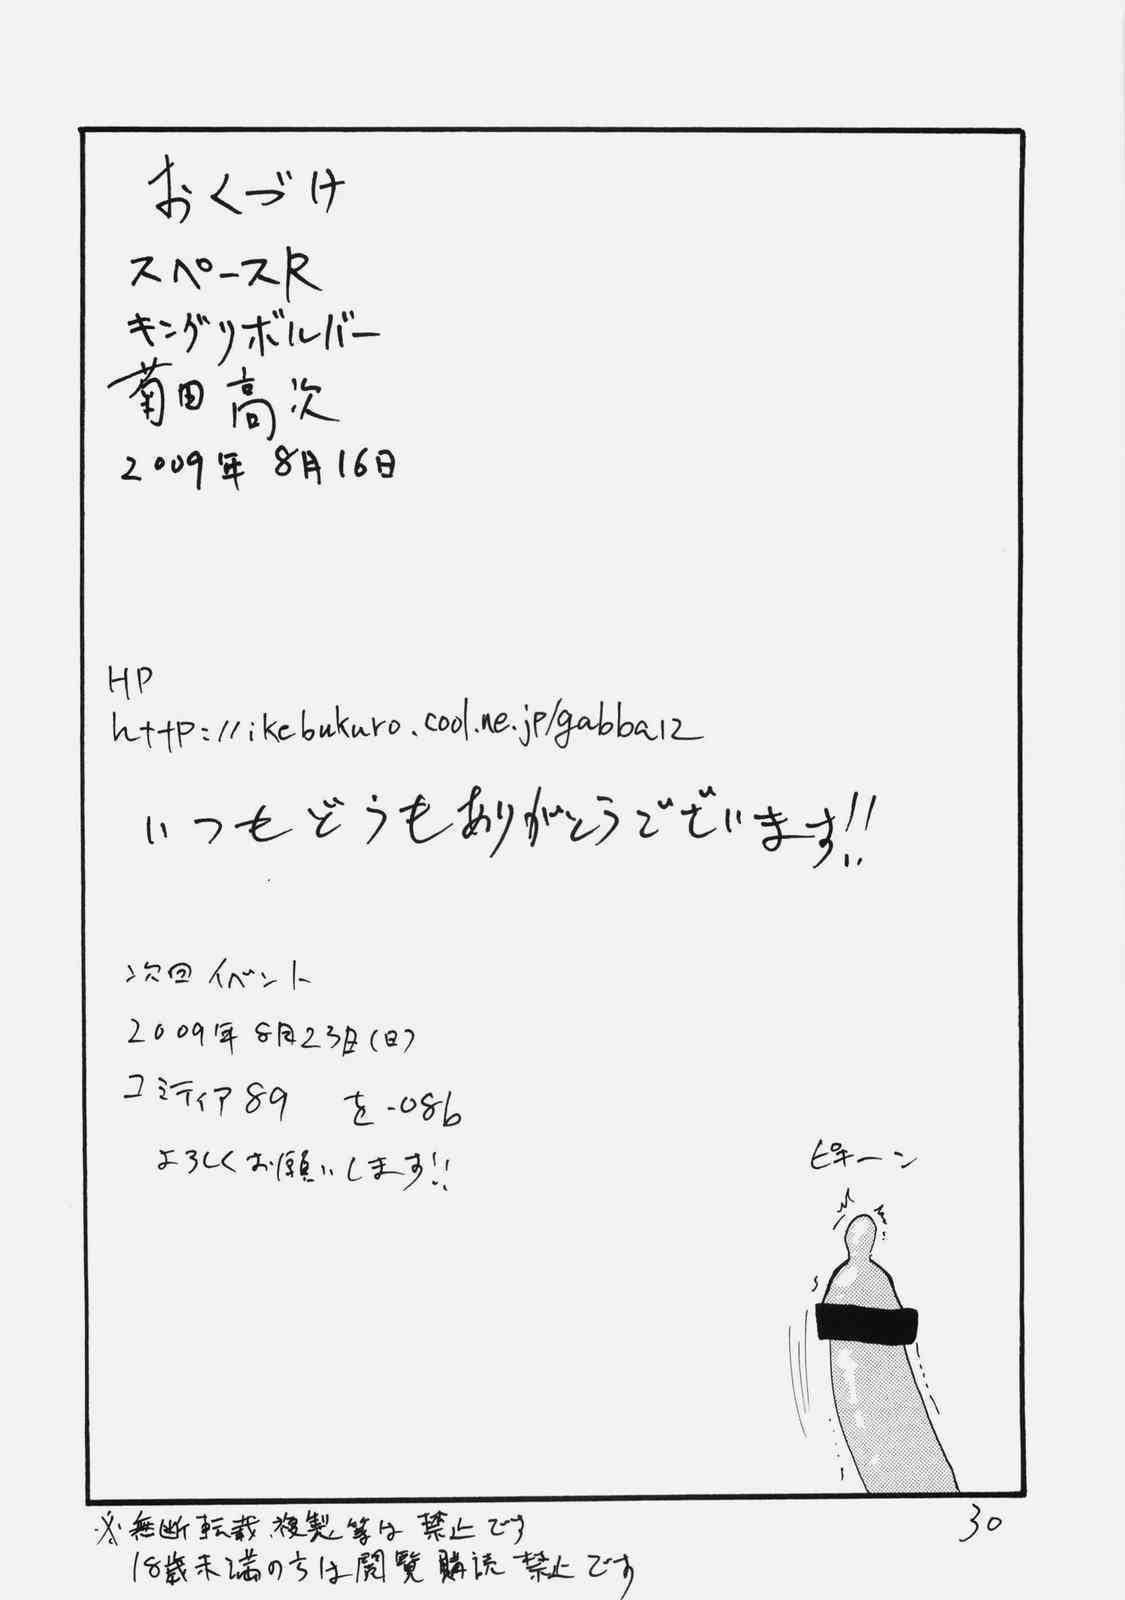 おくづけ
スペースR
キングリボルバー
菊田高次
2009年 8月16日
HP
http://ikebukuro.cool.ne.jp/gabba12
いつもどうもありがとうございます!!
次回イベント
2009年 8月23日(日)
コミティア89 を-08b
よろしくお願いします!!
ピキーン
※無断転載、複製等は禁止です
18歳未満の方は閲覧購読禁止です
30